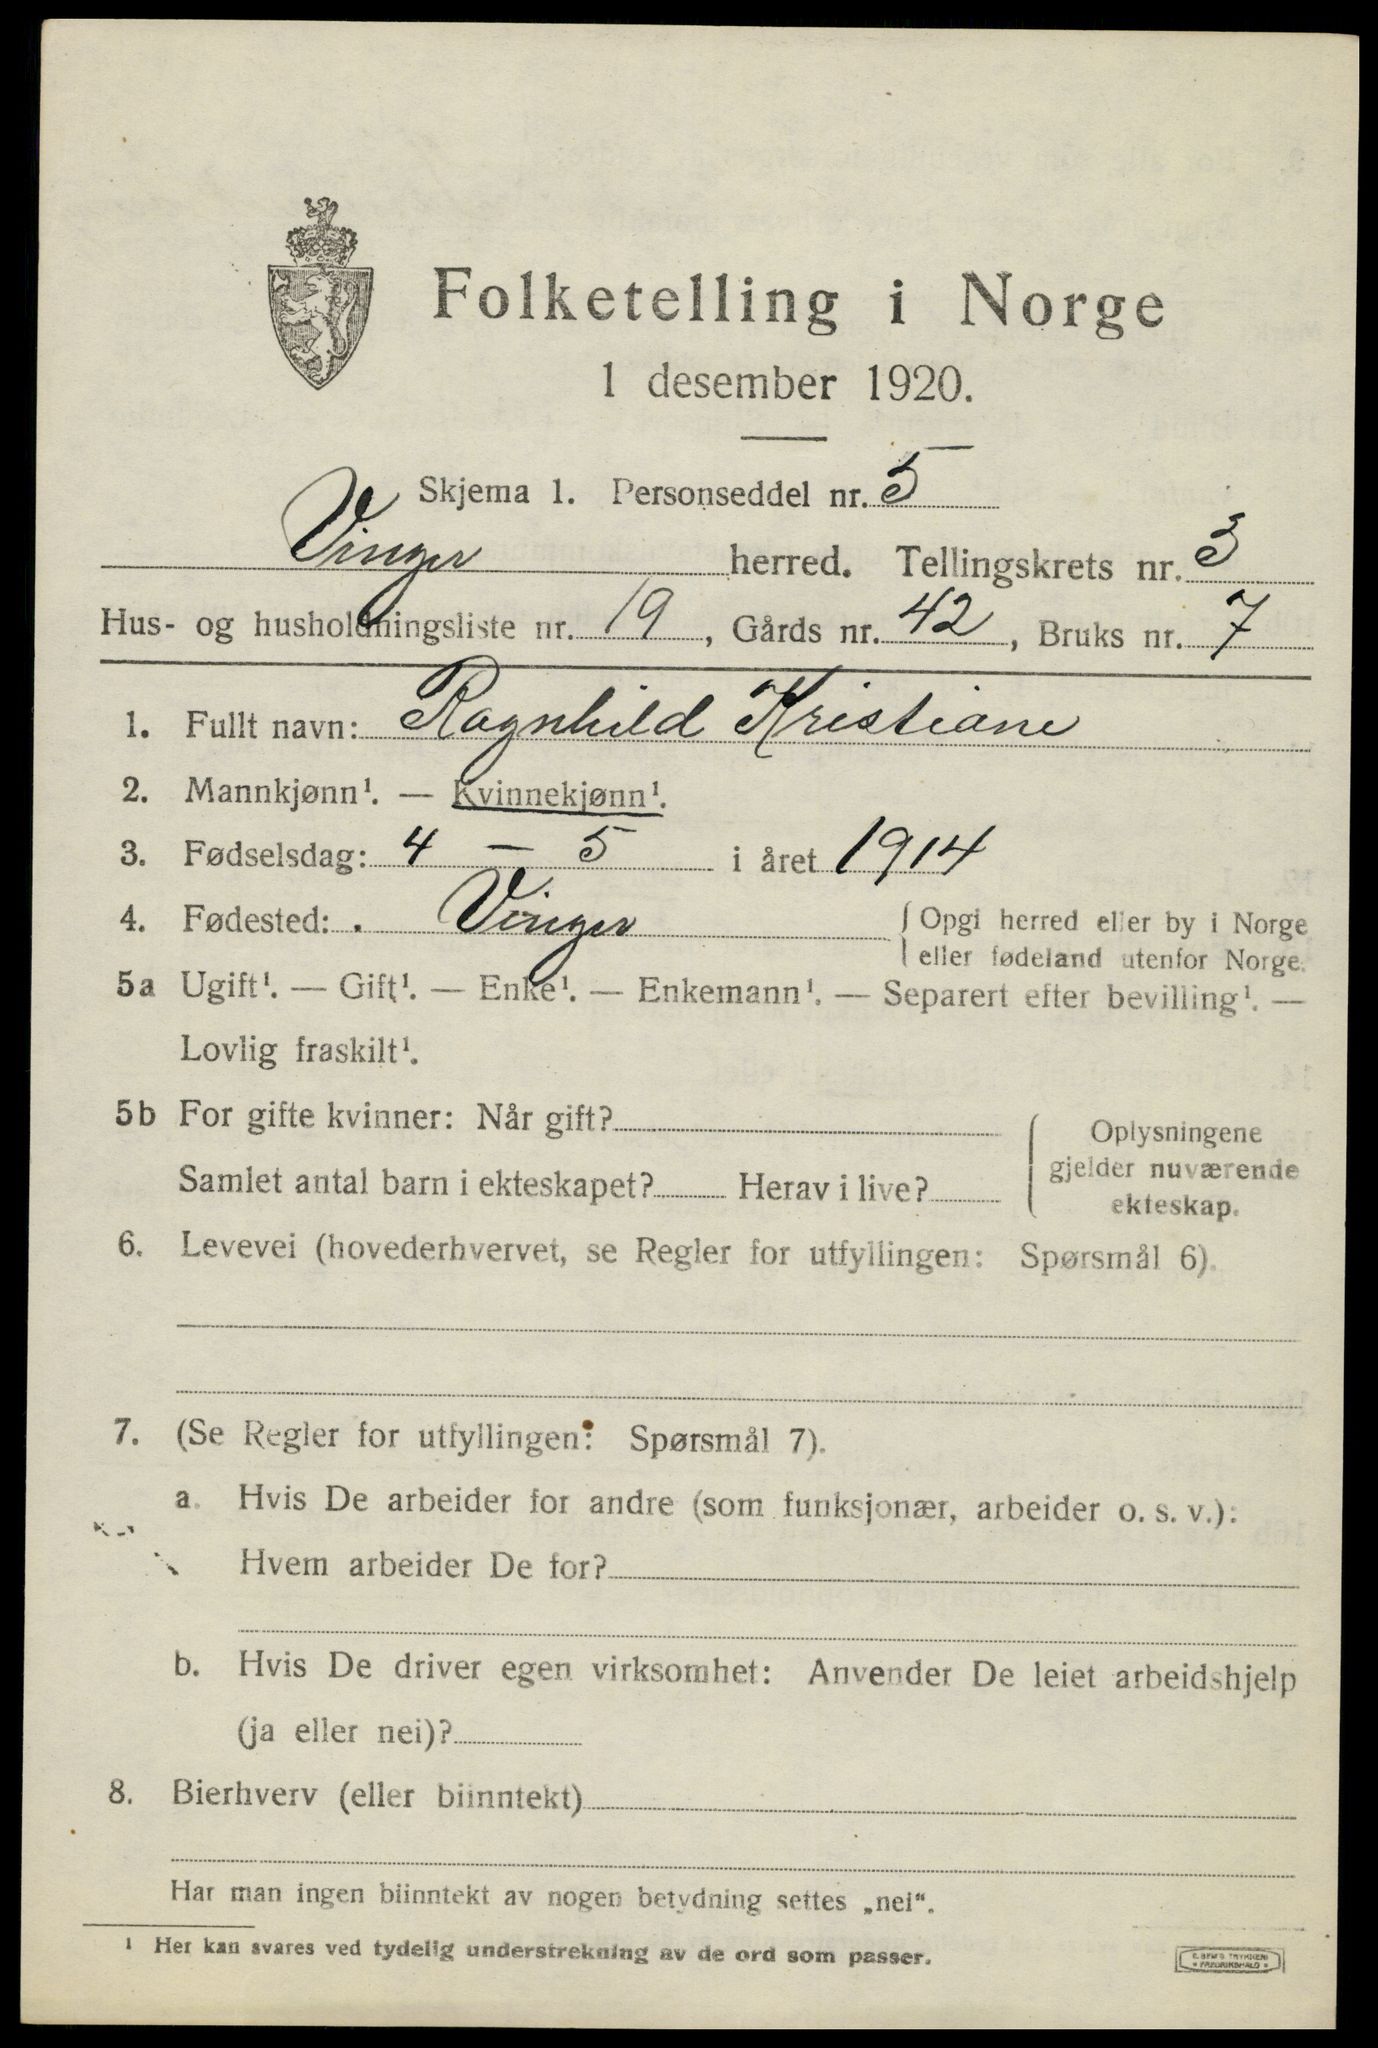 Folketelling i Norge
1 desember 1920.
Skjema 1. Personseddel nr. 5
Vinger herred. Tellingskrets nr. 3
Hus- og husholdningsliste nr. 19, Gårds nr. 42, Bruks nr. 7
1. Fullt navn: Ragnhild Kristiane
2. Mannkjønn¹. — Kvinnekjønn¹.
3. Fødselsdag: 4 — 5 i året 1914
4. Fødested: . Vinger { Opgi herred eller by i Norge
eller fødeland utenfor Norge.
5a Ugift¹. — Gift¹. — Enke¹. — Enkemann¹. — Separert efter bevilling¹. —
Lovlig fraskilt¹.
5b For gifte kvinner: Når gift?
Samlet antal barn i ekteskapet? Herav i live?
{ Oplysningene
gjelder nuværende
ekteskap.
6. Levevei (hovederhvervet, se Regler for utfyllingen: Spørsmål 6).
7. (Se Regler for utfyllingen: Spørsmål 7).
a. Hvis De arbeider for andre (som funksjonær, arbeider o. s. v.):
Hvem arbeider De for?
b. Hvis De driver egen virksomhet: Anvender De leiet arbeidshjelp
(ja eller nei)?
8. Bierhverv (eller biinntekt)
Har man ingen biinntekt av nogen betydning settes „nei“.
¹ Her kan svares ved tydelig understrekning av de ord som passer.
FREDRIKSHALD